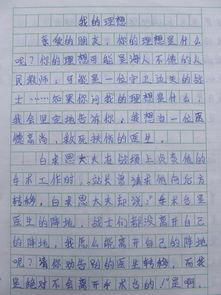 我的理想
亲爱的朋友，你的理想是什么
呢？你的理想可能是诲人不倦的人
民教师，可能是一位守卫边关的战
士……如果你问我的理想是什么，
我会坚定地告诉你：我想当一位医
德高尚、救死扶伤的医生。
白求恩大夫在
手术工作时，师长曾请求他向后方
转移，白求恩大夫却说：“手术台是
医生的阵地，战士们都没离开自己
的阵地，我怎么能离开自己的阵地
呢？请你劝告别的医生转移，而我
是绝对不会离开手术台的！”是啊，